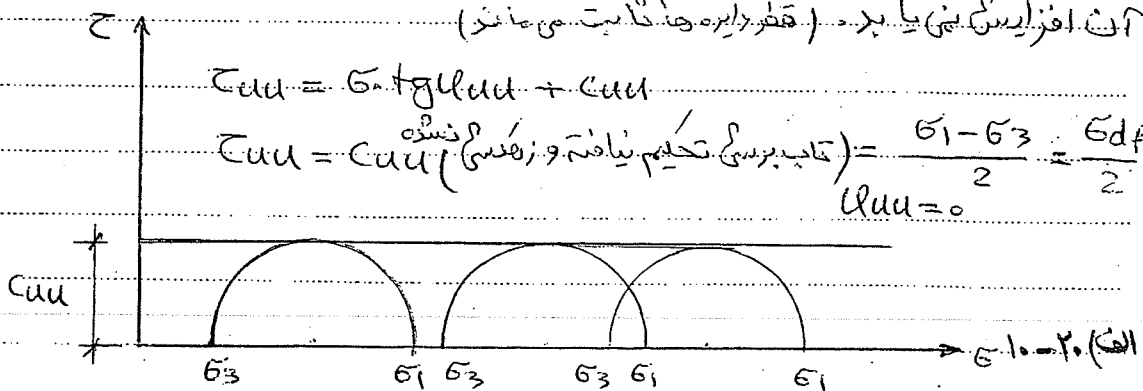 آن افزایش نمی یابد. (قطر دایره ها ثابت می ماند)
τ
τuu = σ. tgφuu + cuu
τuu = cuu (تاب برشی تحکیم نیافته و زهکشی نشده) = σ1-σ3/2 = σdf/2
φuu = 0
cuu
σ3 σ1 σ3 σ3 σ1 σ1 σ
الف) ۲۰-۱۰